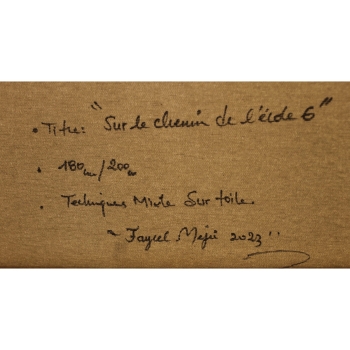 • Titre: "Sur le chemin de l'école 6"
• 180cm/200cm
• Techniques Mixte Sur toile.
~ Fayçel Mejri 2023"